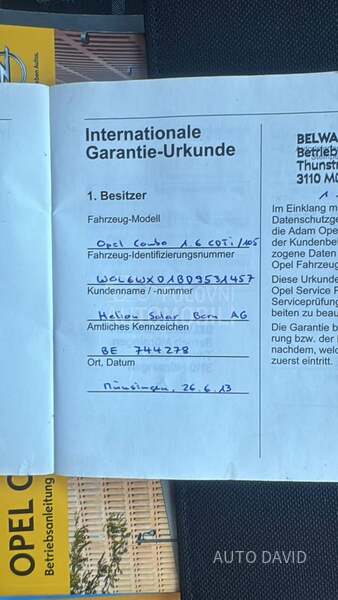 Internationale
Garantie-Urkunde
1. Besitzer
Fahrzeug-Modell
Opel Combo 1.6 CDTi/105
Fahrzeug-Identifizierungsnummer
W0L6WXD18D9531457
Kundenname / -nummer
Helion Solar Bern AG
Amtliches Kennzeichen
BE 744278
Ort, Datum
Münsingen, 26.6.13
BELWA
Betrieb
Thunstr
3110 MÜ
Im Einklang m
Datenschutzge
die Adam Ope
der Kundenbet
zogene Daten
Opel Fahrzeug
Diese Urkunde
Opel Service P
Serviceprüfung
beiten zu beau
Die Garantie b
rung bzw. der
nachdem, welc
zuerst eintritt.
OPEL C
Betriebsanleitung
AUTO DAVID